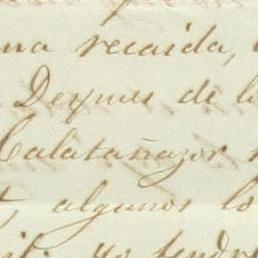 una recaida,
Despues de l
Calatañazor
algunos lo
yo tendre